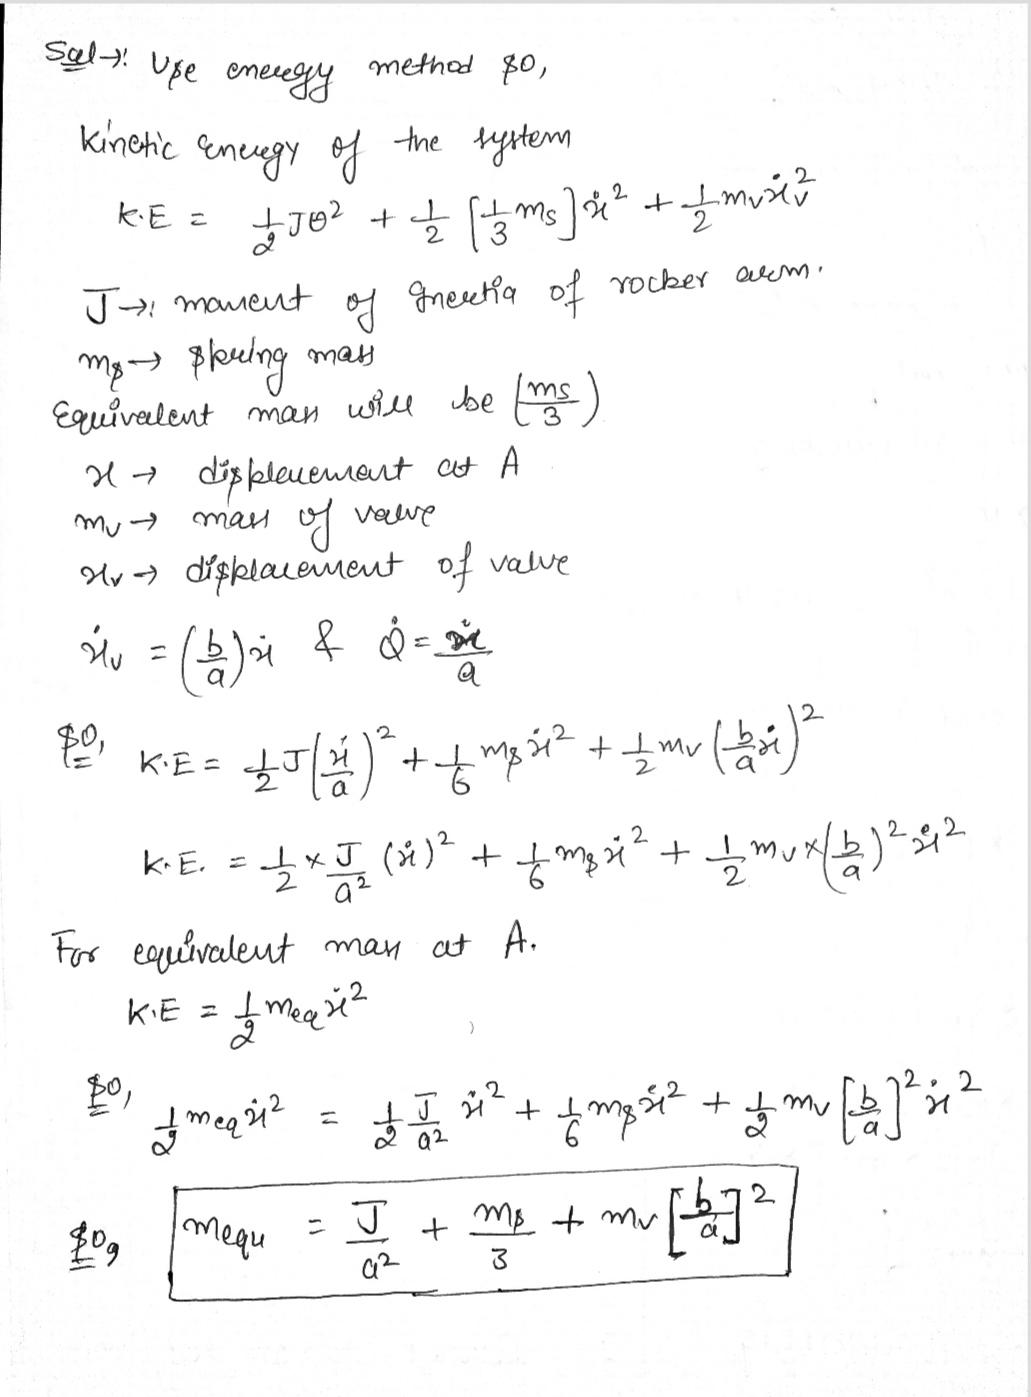 Sol→: Use energy method so,
Kinetic energy of the system
K.E = 1/2 Jθ² + 1/2 [1/3 ms] ẋ² + 1/2 mv ẋv²
J→: moment of Inertia of rocker arm.
ms → spring mass
Equivalent mass will be (ms/3)
x → displacement at A
mv → mass of valve
xv → displacement of valve
ẋv = (b/a) ẋ & θ̇ = ẋ/a
So, K.E = 1/2 J(ẋ/a)² + 1/6 ms ẋ² + 1/2 mv (b/a ẋ)²
K.E. = 1/2 × J/a² (ẋ)² + 1/6 ms ẋ² + 1/2 mv × (b/a)² ẋ²
For equivalent mass at A.
K.E = 1/2 meq ẋ²
So, 1/2 meq ẋ² = 1/2 J/a² ẋ² + 1/6 ms ẋ² + 1/2 mv [b/a]² ẋ²
So, mequ = J/a² + ms/3 + mv [b/a]²